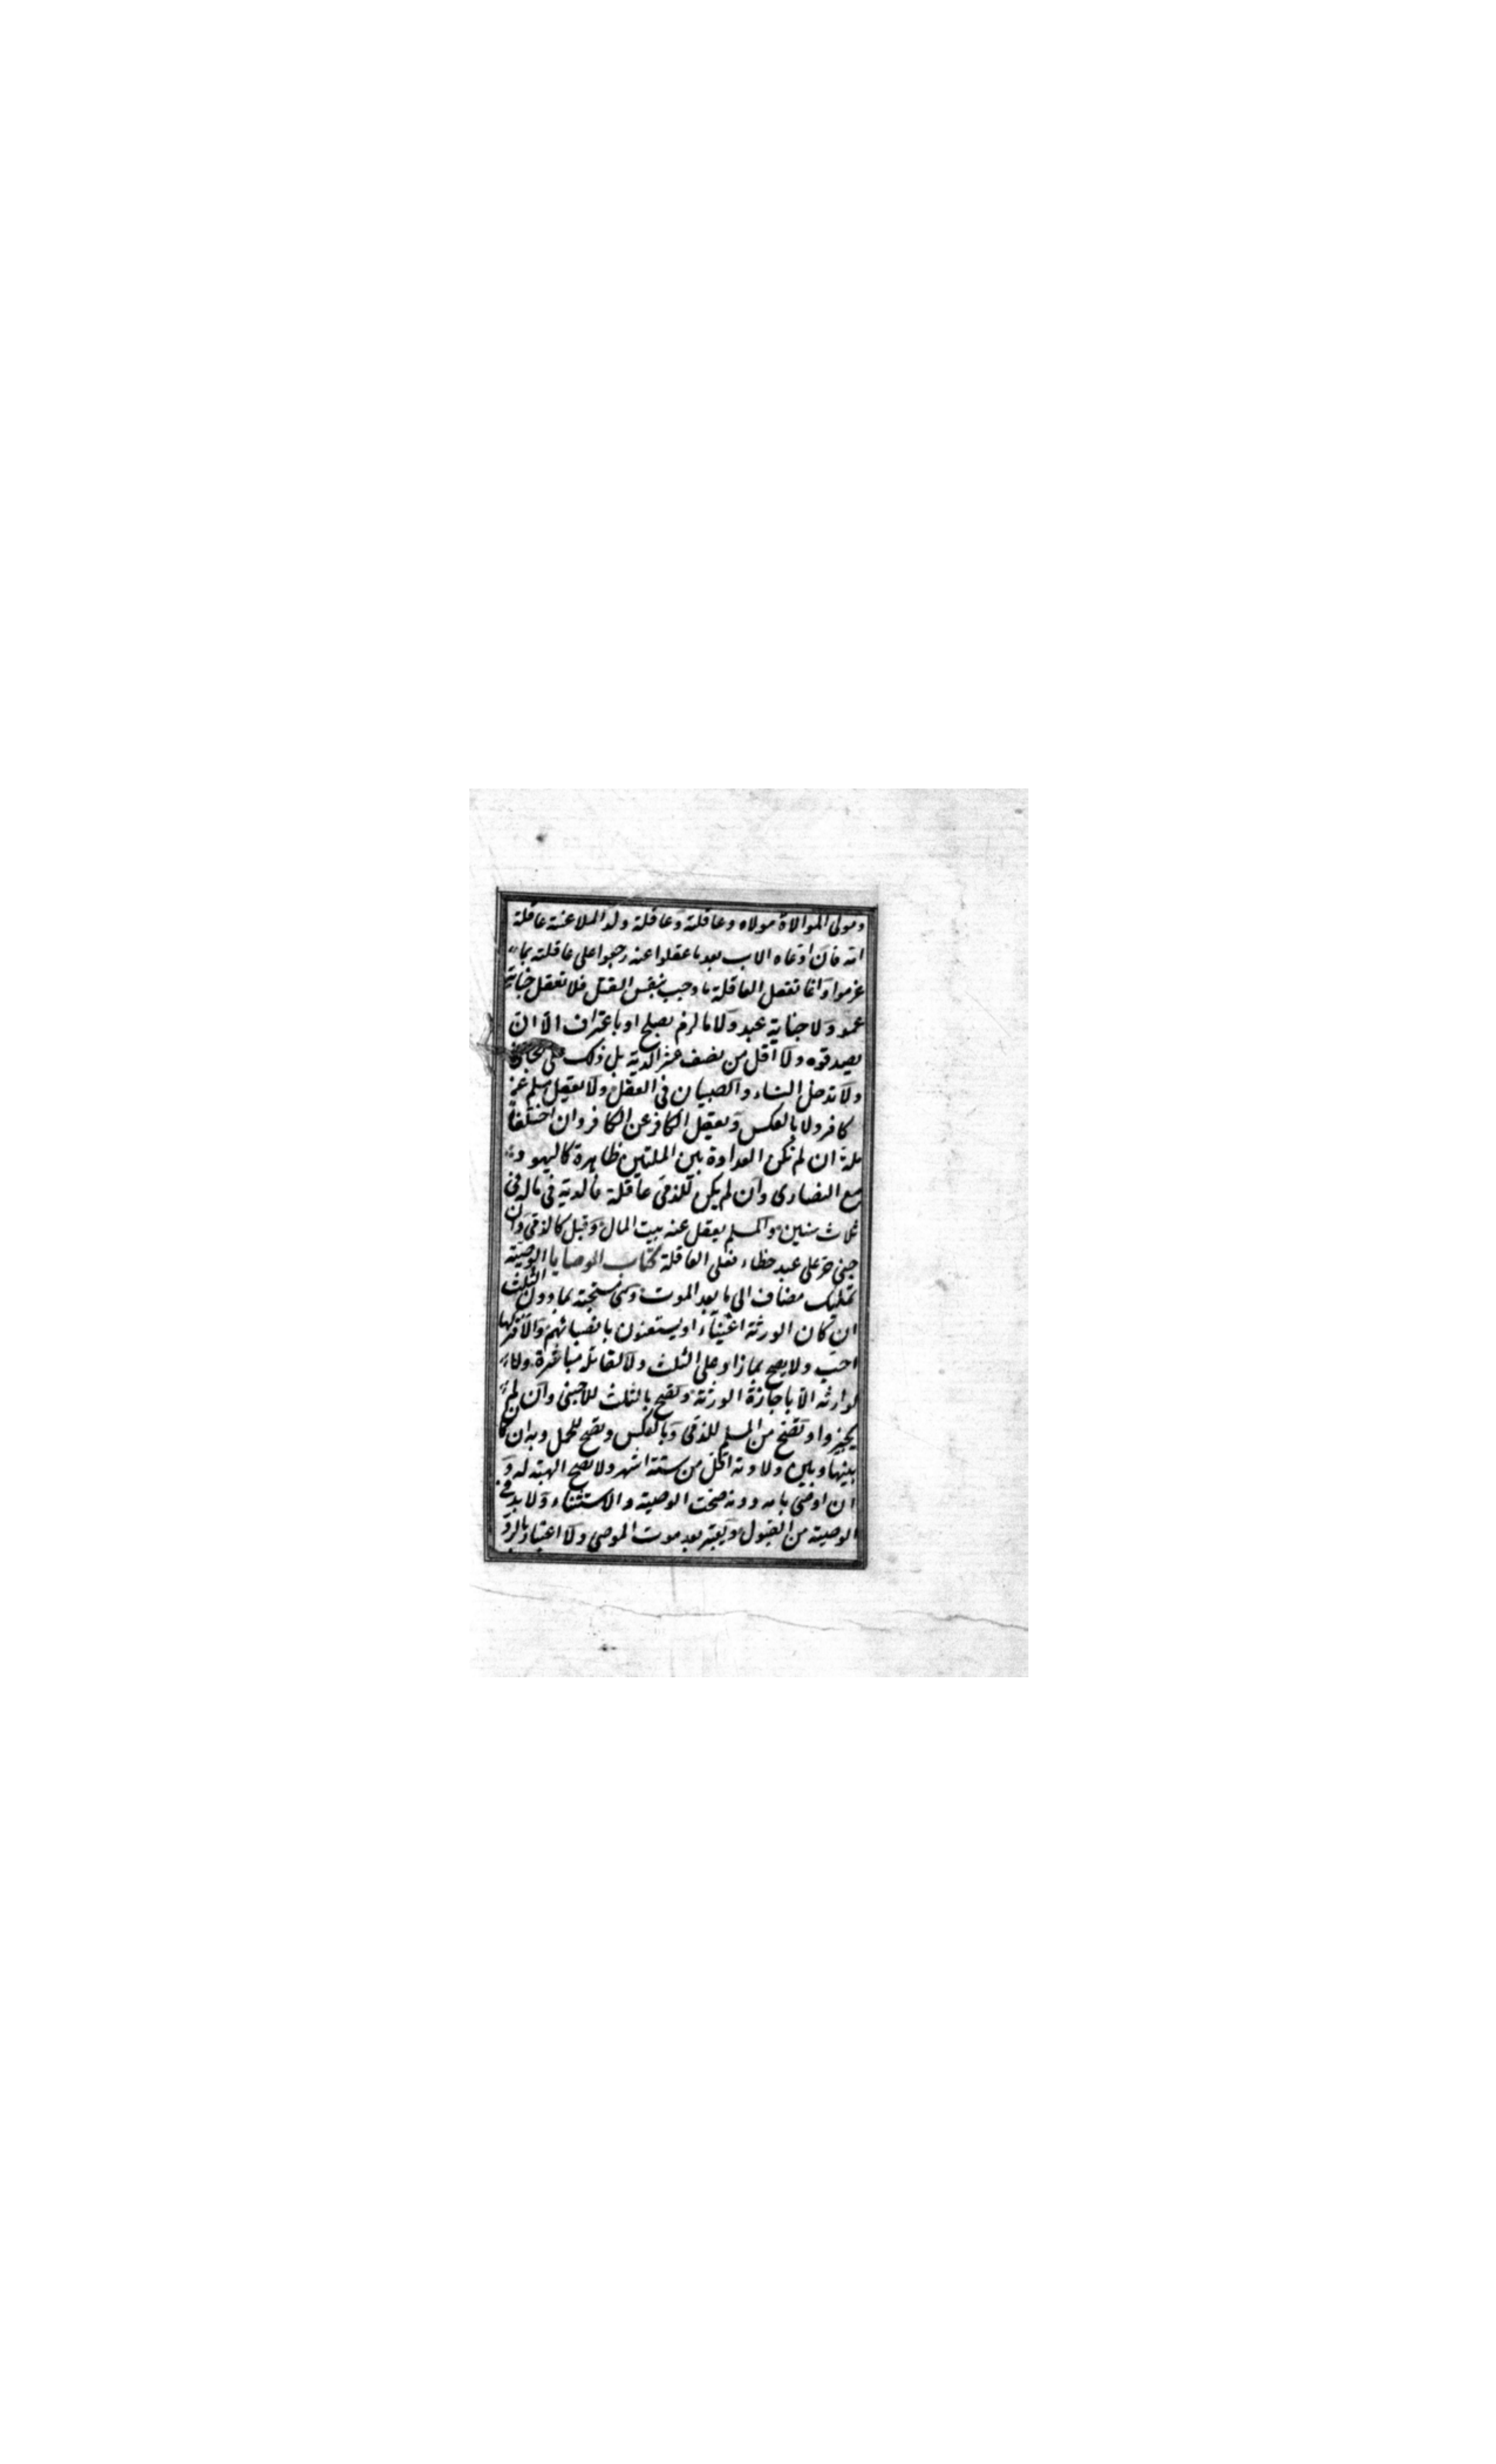 ومولى الموالاة مولاه وعاقلته وعاقلة ولد الملاعنة عاقلة
امه فان ادعاه الاب بعد ما عقلوا عنه رجعوا على عاقلته بما
غرموا وانما تعقل العاقلة ما وجب بنفس القتل فلا تعقل جناية
عمد ولا جناية عبد ولا ما لزم بصلح او باعتراف الا ان
يصدقوه ولا اقل من نصف عشر الدية بل ذلك على الجاني
ولا تدخل النساء والصبيان في العقل ولا يعقل مسلم عن
كافر ولا بالعكس ويعقل الكافر عن الكافر وان اختلفا
ملة ان لم تكن العداوة بين الملتين ظاهرة كاليهود
مع النصارى وان لم يكن للذمي عاقلة فالدية في ماله في
ثلاث سنين والمسلم يعقل عنه بيت المال وقيل كالذمي وان
جنى حر على عبد خطاء فعلى العاقلة كتاب الوصايا الوصية
تمليك مضاف الى ما بعد الموت وهي مستحبة بما دون الثلث
ان كان الورثة اغنياء او يستغنون بانصبائهم والا فتركها
احب ولا يصح بما زاد على الثلث ولا لقاتله مباشرة ولا
لوارثه الا باجازة الورثة وتصح بالثلث للاجنبي وان لم
يجيزوا وتصح من المسلم للذمي وبالعكس وتصح للحمل وبه ان كان
بينها وبين ولادته اقل من ستة اشهر ولا تصح الهبة له و
ان اوصى بامة دونه صحت الوصية والاستثناء ولا بد في
الوصية من القبول ويعتبر بعد موت الموصي ولا اعتبار بالرد